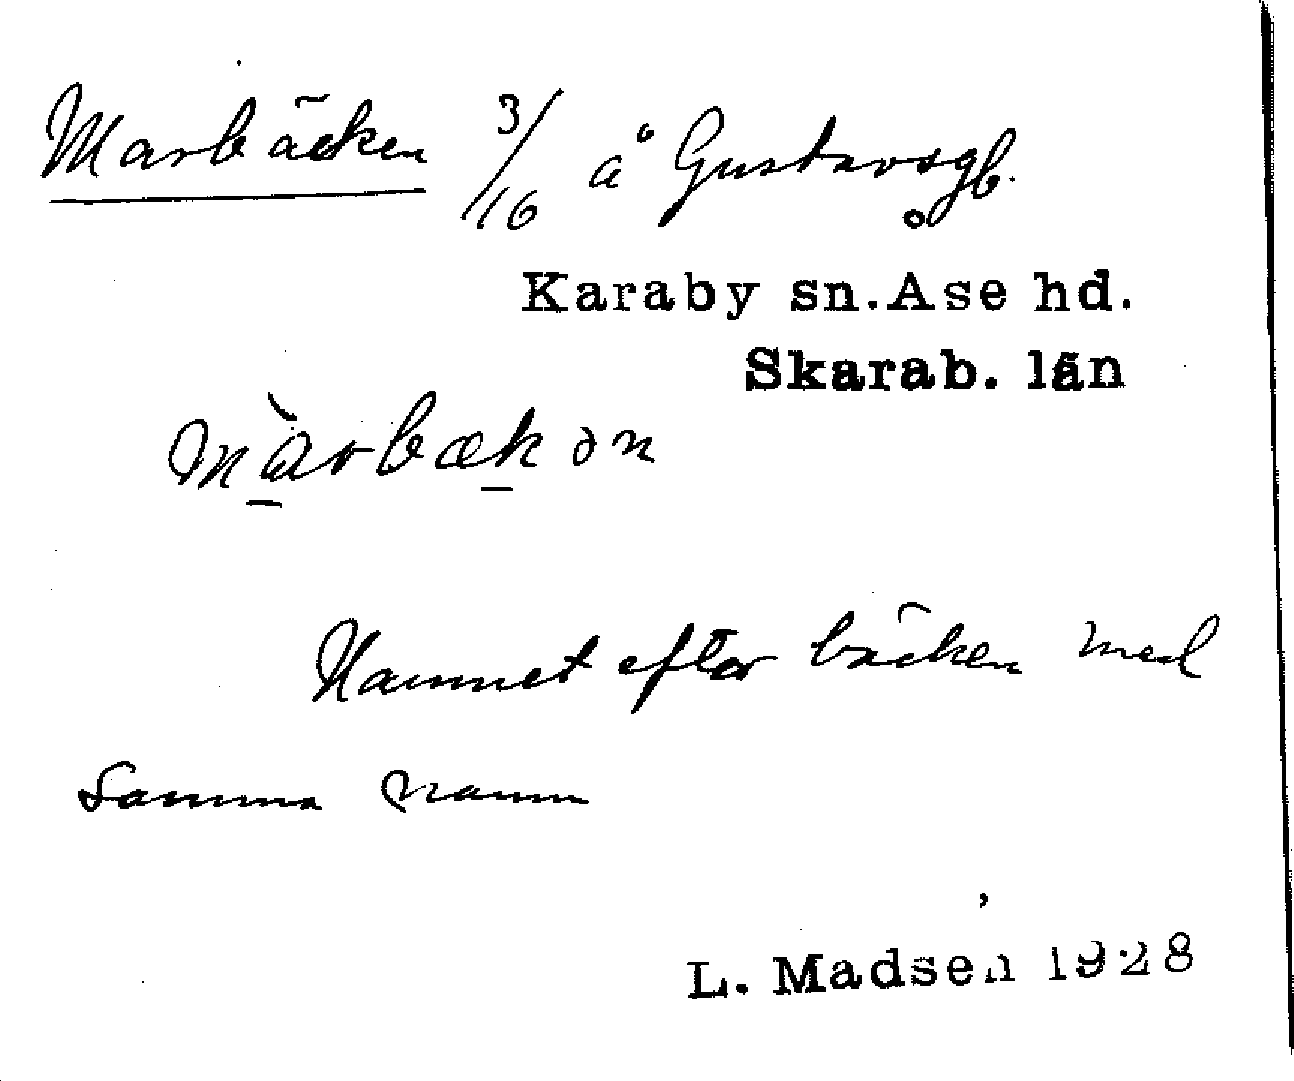 Marbäcken 3/16 å Gustavsgb.
Karaby sn. Åse hd.
Skarab. län
màrbækən
Namnet efter bäcken med
samma namn
L. Madsen 1928